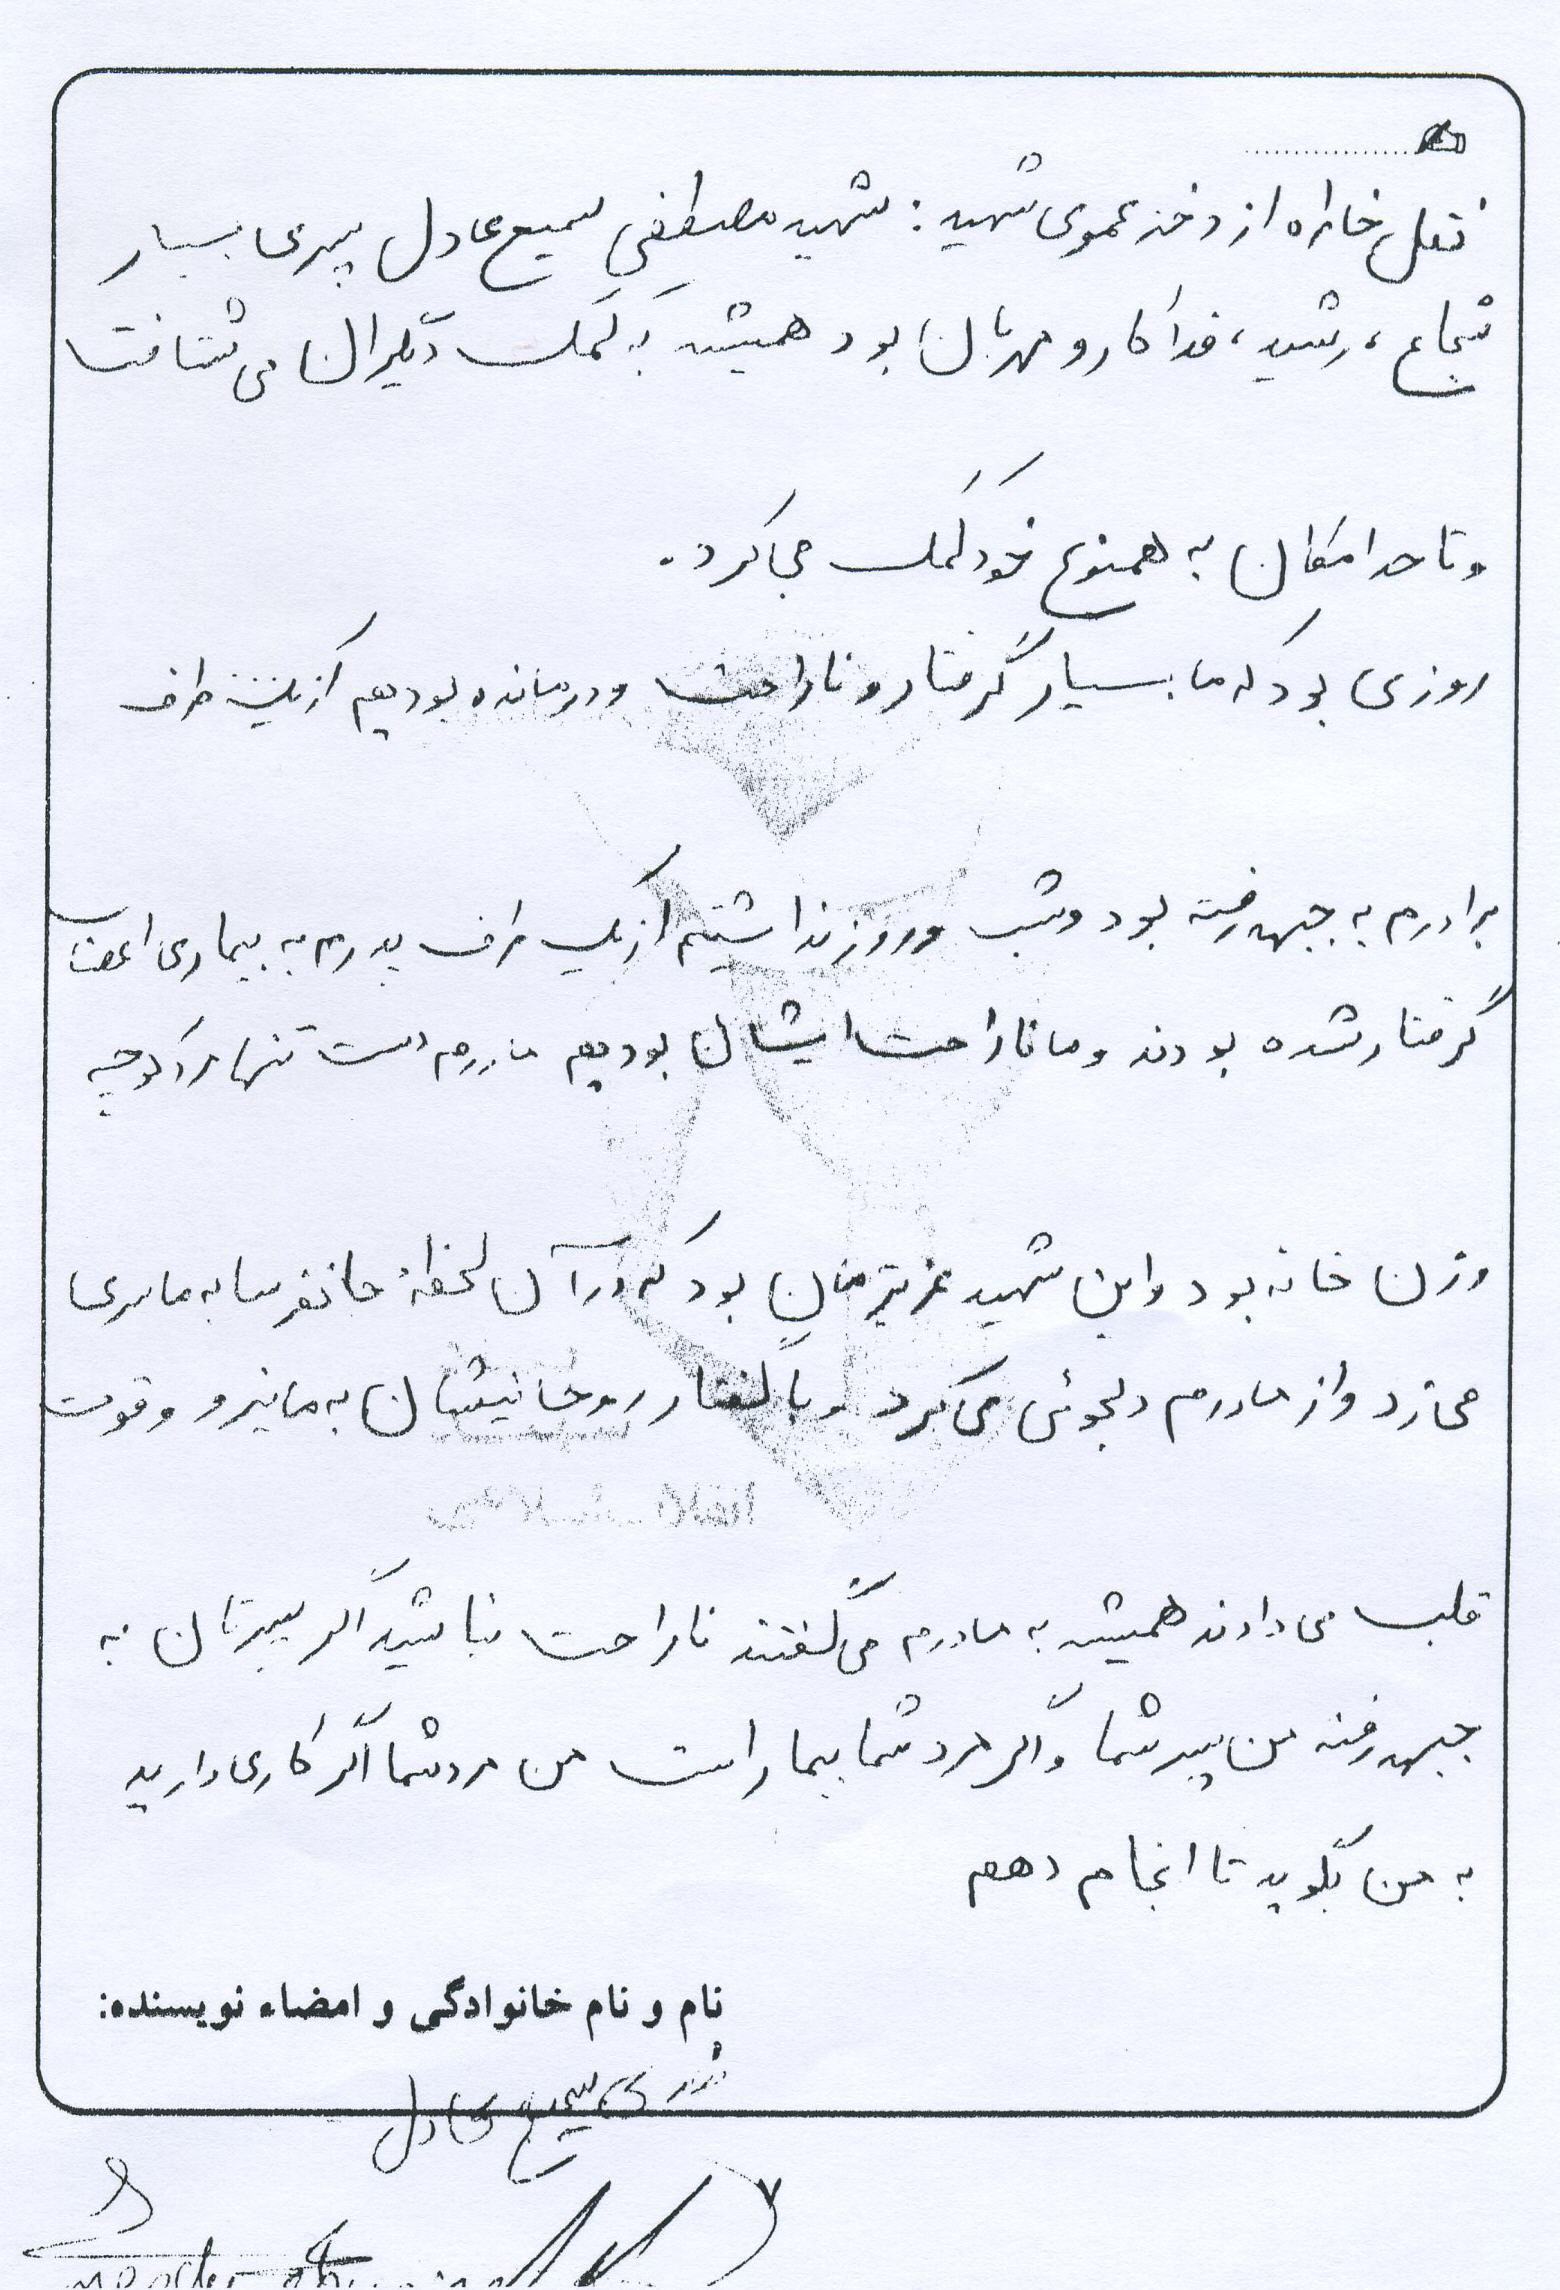 نقل خاطره از دختر عموی شهید: شهید مصطفی سمیع عادل پسری بسیار
شجاع، رشید، فداکار و مهربان بود همیشه به کمک دیگران می شتافت
و تا حد امکان به همنوع خود کمک می کرد.
روزی بود که ما بسیار گرفتار و ناراحت و درمانده بودیم از یک طرف
برادرم به جبهه رفته بود و شب و روز نداشتیم از یک طرف پدرم به بیماری اعصاب
گرفتار شده بودند و ما ناراحت ایشان بودیم مادرم دست تنها مرد کوچه
و زن خانه بود و این شهید عزیزمان بود که در آن لحظه جانفرسا به ما سری
می زد و از مادرم دلجوئی می کرد و با گفتار روحانیشان به ما نیرو و قوت
قلب می دادند همیشه به مادرم می گفتند ناراحت نباشید اگر پسرتان به
جبهه رفته من پسر شما و اگر مرد شما بیمار است من مرد شما اگر کاری دارید
به من بگوید تا انجام دهم
نام و نام خانوادگی و امضاء نویسنده:
سمیع عادل